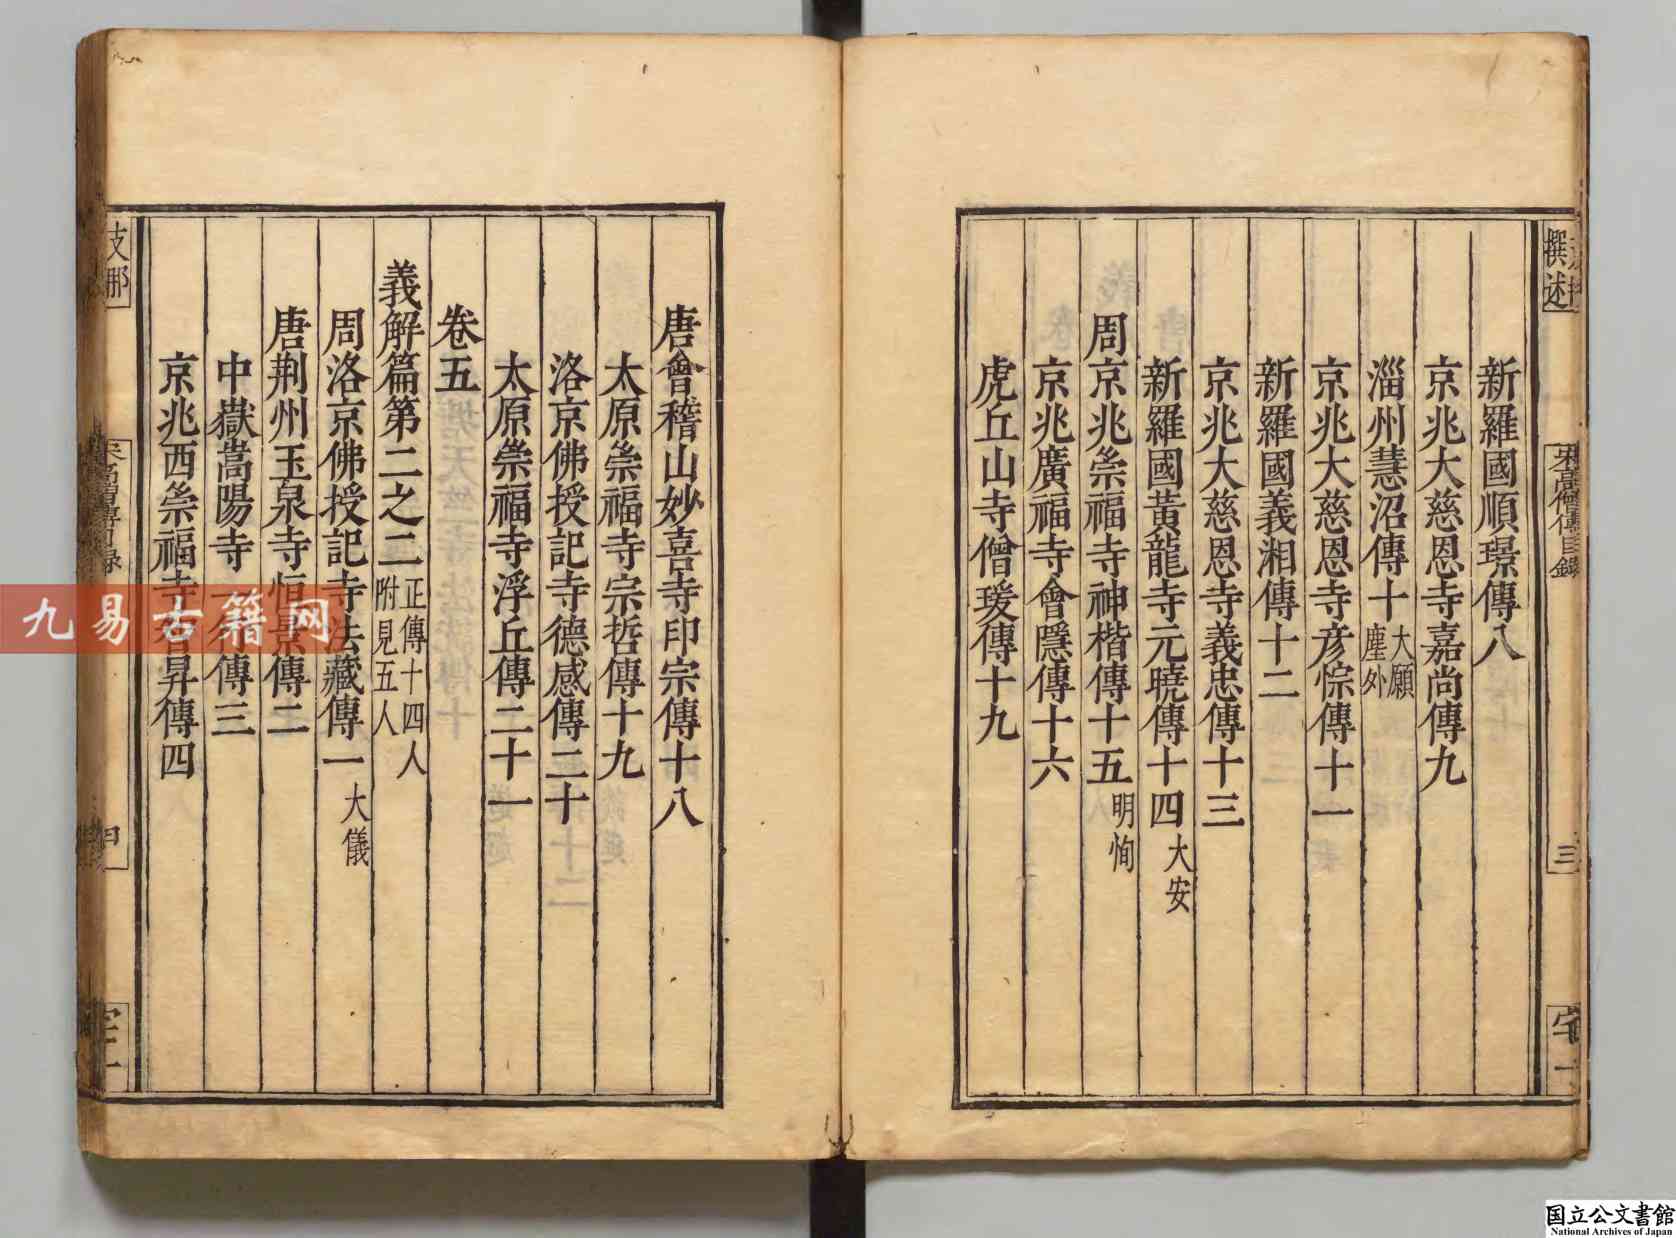 撰述
宋高僧傳目錄
三
宅一
新羅國順璟傳八
京兆大慈恩寺嘉尚傳九
淄州慧沼傳十 大願 塵外
京兆大慈恩寺彥悰傳十一
新羅國義湘傳十二
京兆大慈恩寺義忠傳十三
新羅國黃龍寺元曉傳十四 大安
周京兆崇福寺神楷傳十五 明恂
京兆廣福寺會隱傳十六
虎丘山寺僧瑗傳十九
唐會稽山妙喜寺印宗傳十八
太原崇福寺宗哲傳十九
洛京佛授記寺德感傳二十
太原崇福寺浮丘傳二十一
卷五
義解篇第二之二 正傳十四人 附見五人
周洛京佛授記寺法藏傳一 大儀
唐荆州玉泉寺恒景傳二
中嶽嵩陽寺一行傳三
京兆西崇福寺智昇傳四
支那
宋高僧傳目錄
宅一
九易古籍网
国立公文書館
National Archives of Japan